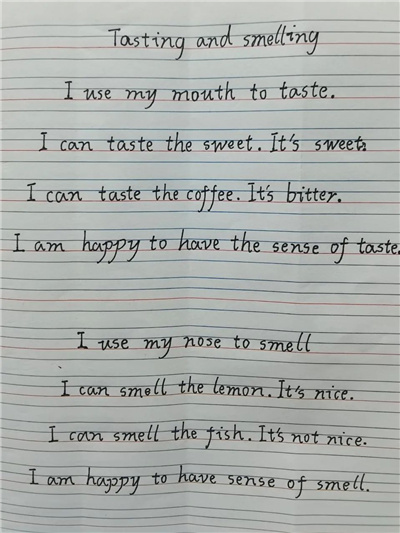 Tasting and smelling
I use my mouth to taste.
I can taste the sweet. It's sweet.
I can taste the coffee. It's bitter.
I am happy to have the sense of taste.
I use my nose to smell
I can smell the lemon. It's nice.
I can smell the fish. It's not nice.
I am happy to have sense of smell.